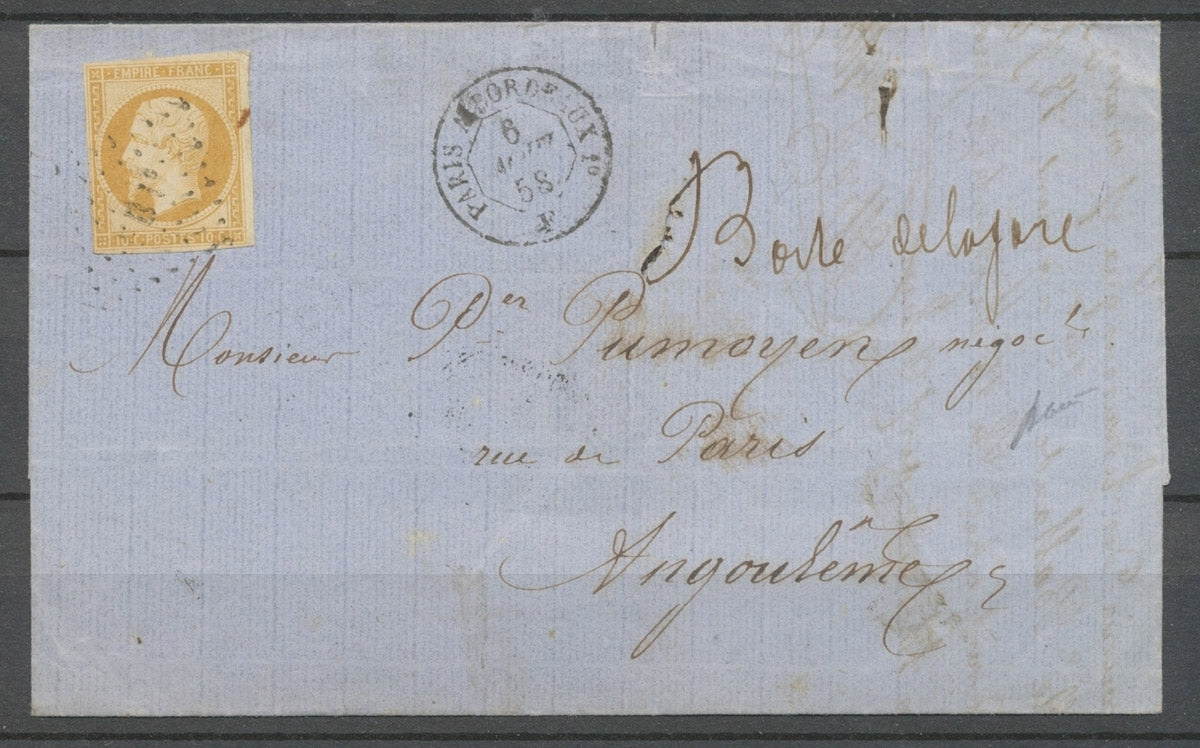 EMPIRE · FRANC ·
10·C·POSTES·10·C
PARIS A BORDEAUX 1º
6
58
Boite de la gare
Monsieur Per Pumoyen, négoct
rue de Paris
Angoulême